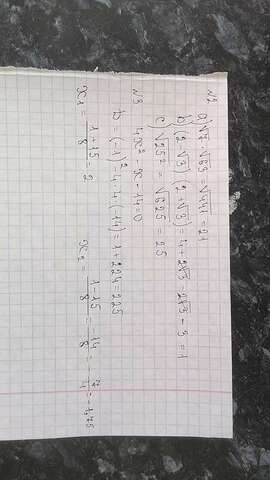 №2
a) √7 · √63 = √441 = 21
b) (2 - √3) · (2 + √3) = 4 + 2√3 - 2√3 - 3 = 1
c) √25² = √625 = 25
№3
4x² - x - 14 = 0
D = (-1)² - 4 · 4 · (-14) = 1 + 224 = 225
x₁ = (1 + 15)/8 = 2 x₂ = (1 - 15)/8 = -14/8 = -7/4 = -1,75